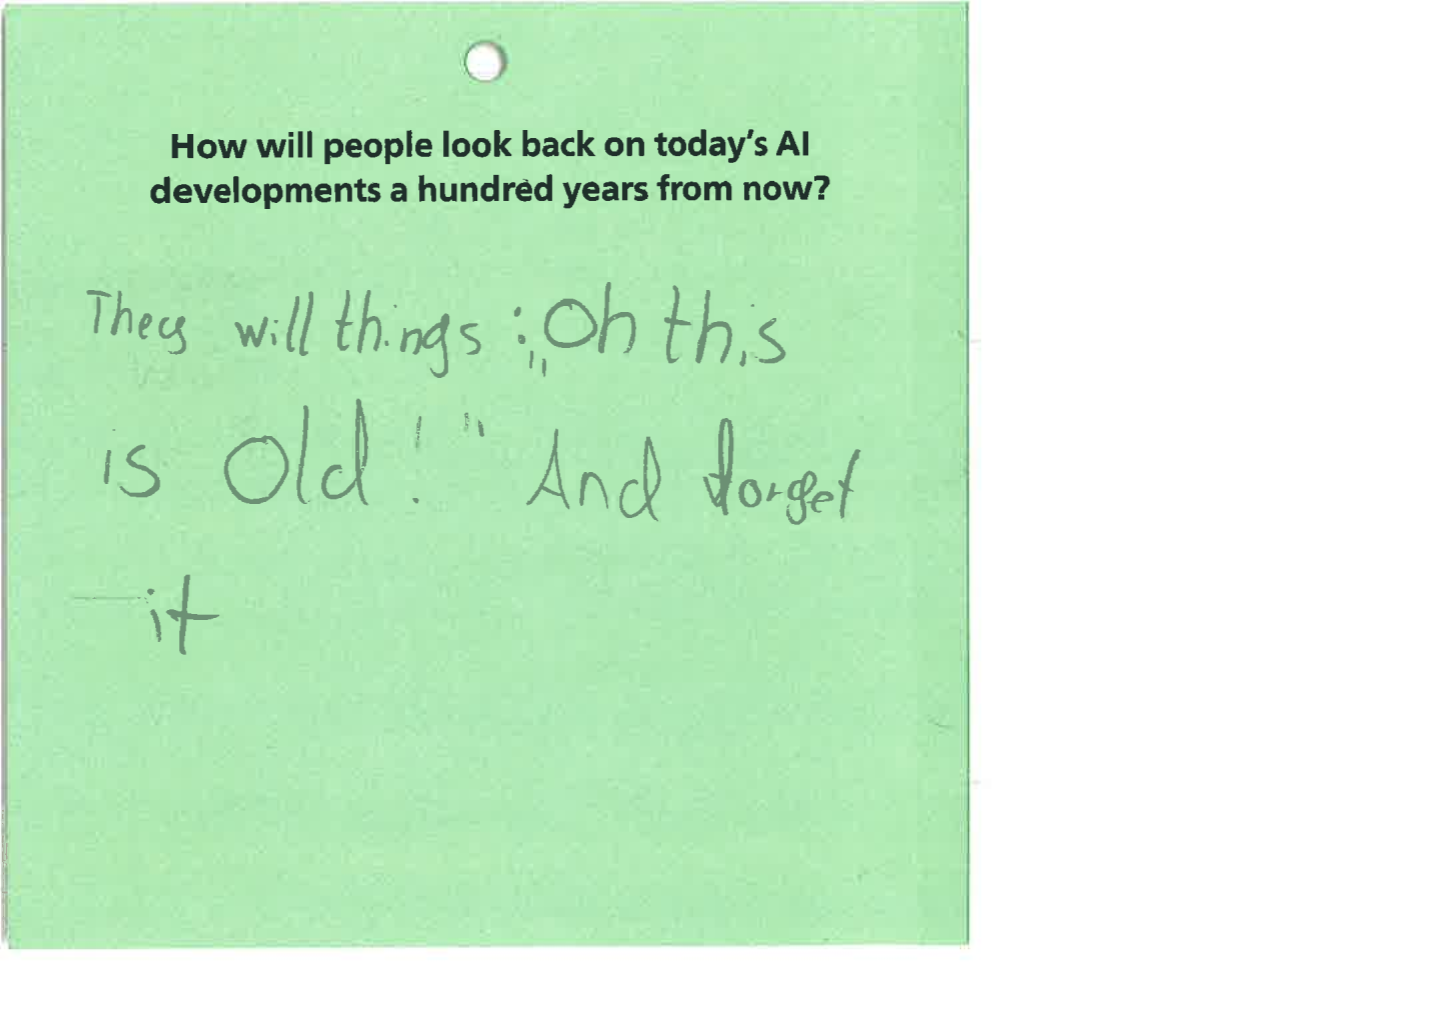 How will people look back on today's AI
developments a hundred years from now?
They will things : „Oh this
is Old! " And forget
it